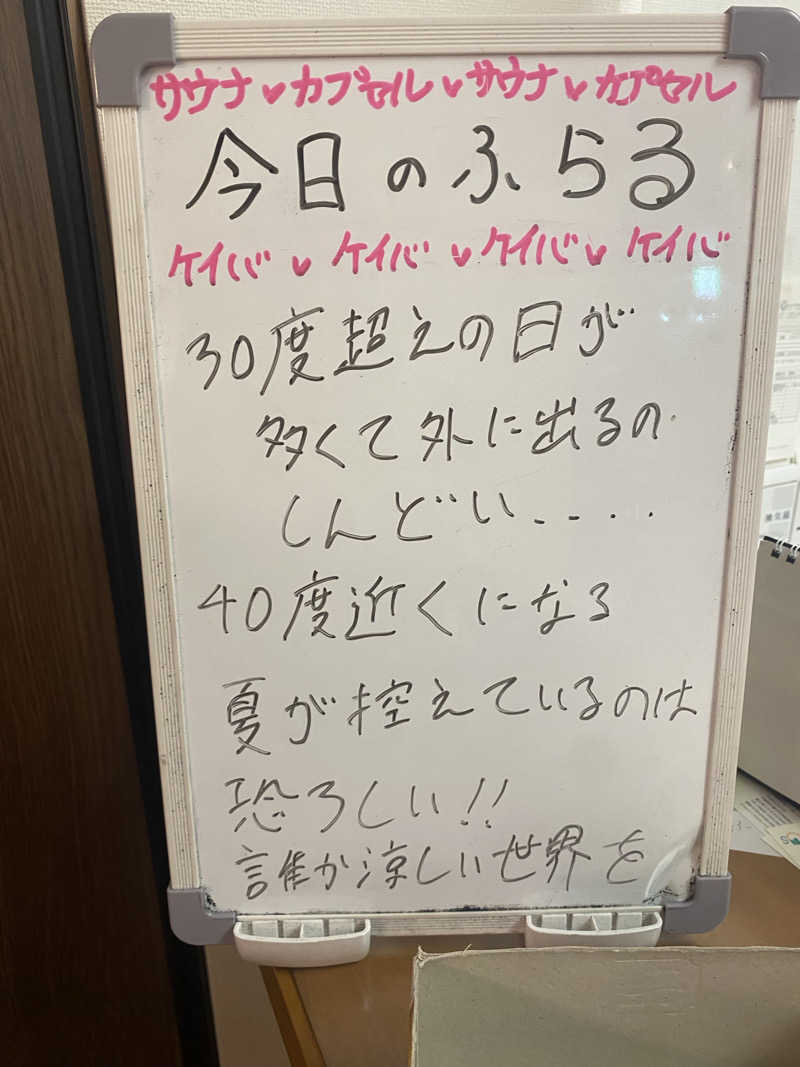 サウナ♥カプセル♥サウナ♥カプセル
今日のふらる
ケイバ♥ケイバ♥ケイバ♥ケイバ
30度超えの日が
多くて外に出るの
しんどい....
40度近くになる
夏が控えているのは
恐ろしい!!
誰か涼しい世界を